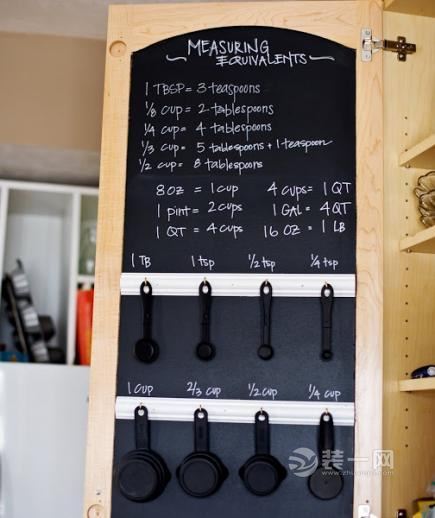 MEASURING
EQUIVALENTS
1 TBSP = 3 teaspoons
1/8 cup = 2 tablespoons
1/4 cup = 4 tablespoons
1/3 cup = 5 tablespoons + 1 teaspoon
1/2 cup = 8 tablespoons
8 oz = 1 cup 4 cups = 1 QT
1 pint = 2 cups 1 GAL = 4 QT
1 QT = 4 cups 16 oz = 1 LB
1 TB 1 tsp 1/2 tsp 1/4 tsp
1 cup 2/3 cup 1/2 cup 1/4 cup
装一网